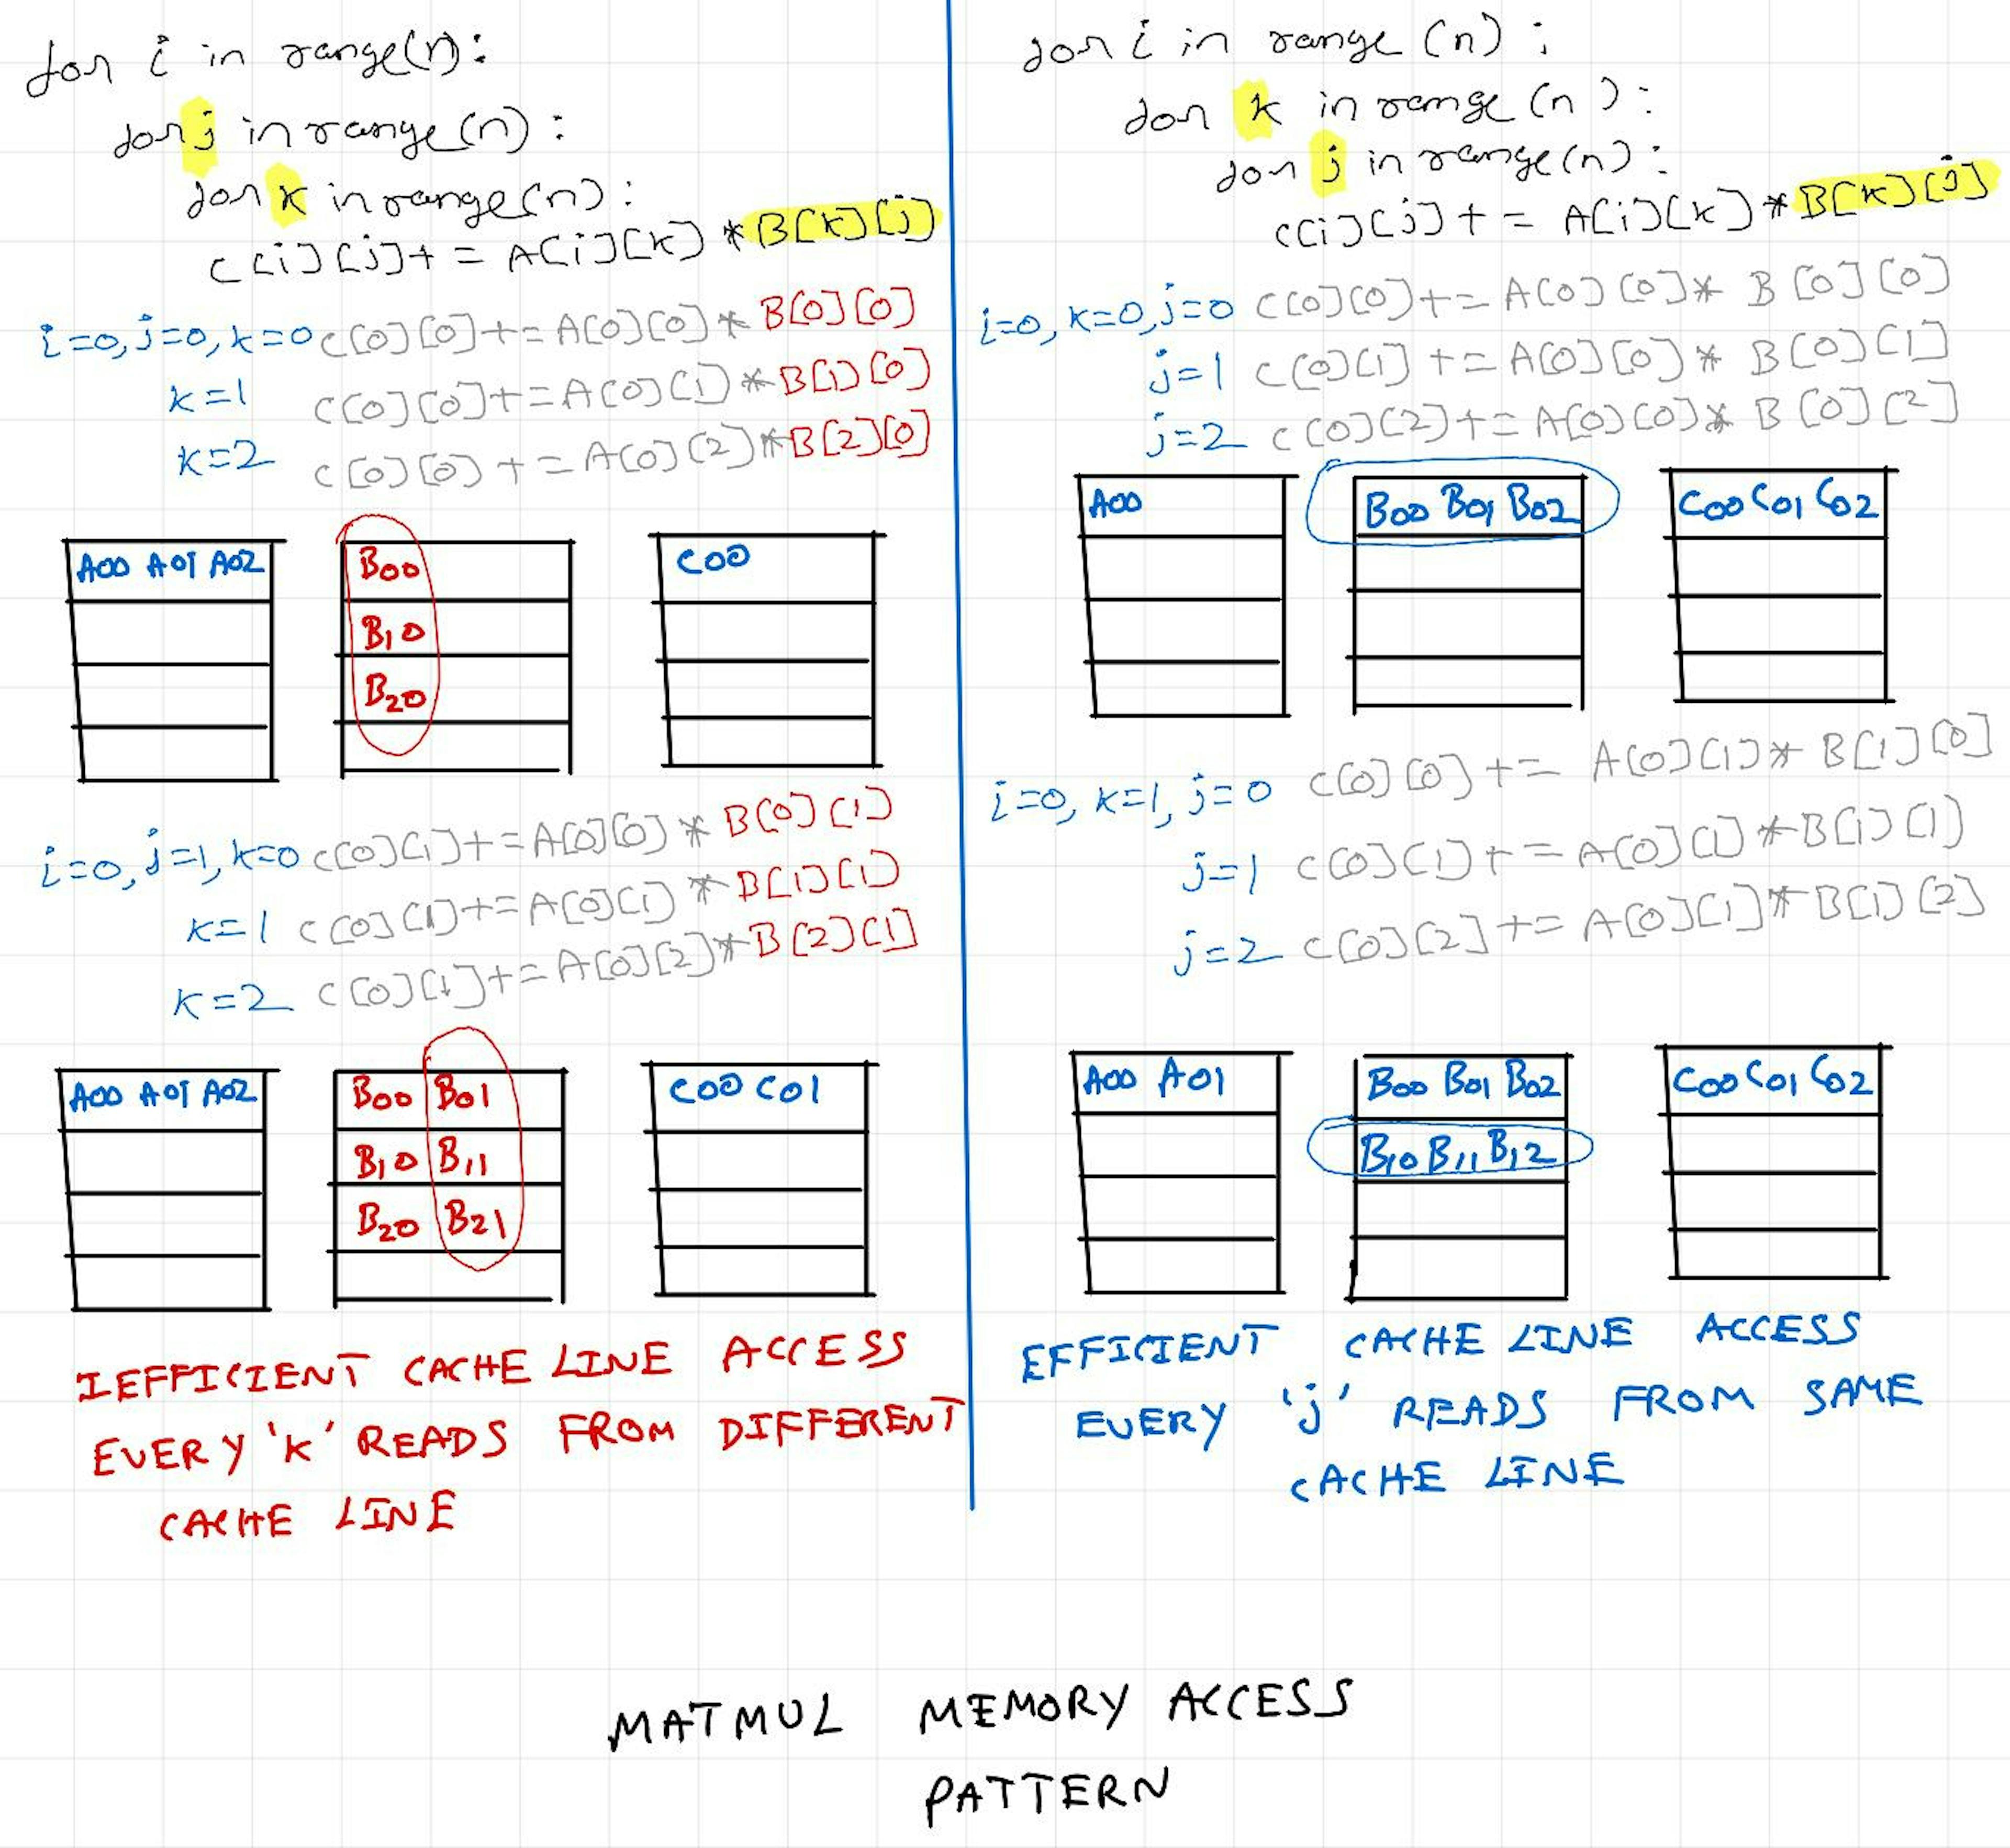 for i in range(n):
for j in range(n):
for k in range(n):
C[i][j] += A[i][k] * B[k][j]
i=0, j=0, k=0 C[0][0] += A[0][0] * B[0][0]
k=1 C[0][0] += A[0][1] * B[1][0]
k=2 C[0][0] += A[0][2] * B[2][0]
A00 A01 A02 B00 C00
B10
B20
i=0, j=1, k=0 C[0][1] += A[0][0] * B[0][1]
k=1 C[0][1] += A[0][1] * B[1][1]
k=2 C[0][1] += A[0][2] * B[2][1]
A00 A01 A02 B00 B01 C00 C01
B10 B11
B20 B21
IEFFICIENT CACHE LINE ACCESS
EVERY 'k' READS FROM DIFFERENT
CACHE LINE
for i in range(n):
for k in range(n):
for j in range(n):
C[i][j] += A[i][k] * B[k][j]
i=0, k=0, j=0 C[0][0] += A[0][0] * B[0][0]
j=1 C[0][1] += A[0][0] * B[0][1]
j=2 C[0][2] += A[0][0] * B[0][2]
A00 B00 B01 B02 C00 C01 C02
i=0, k=1, j=0 C[0][0] += A[0][1] * B[1][0]
j=1 C[0][1] += A[0][1] * B[1][1]
j=2 C[0][2] += A[0][1] * B[1][2]
A00 A01 B00 B01 B02 C00 C01 C02
B10 B11 B12
EFFICIENT CACHE LINE ACCESS
EVERY 'j' READS FROM SAME
CACHE LINE
MATMUL MEMORY ACCESS
PATTERN